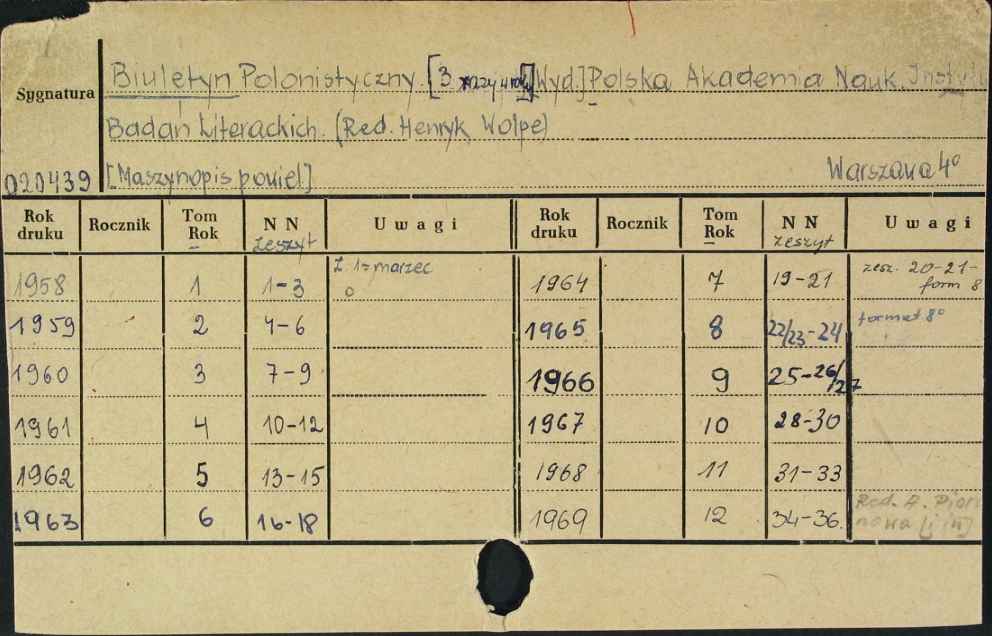 Sygnatura
Biuletyn Polonistyczny. [3 Wyd.] Polska Akademia Nauk. Instyt
Badań Literackich. (Red. Henryk Wolpe)
020439 [Maszynopis powiel] Warszawa 4°
Rok druku Rocznik Tom Rok N N zeszyt Uwagi Rok druku Rocznik Tom Rok N N zeszyt Uwagi
1958 1 1-3 Z. 1= marzec 1964 7 19-21 zesz. 20-21- form 8
1959 2 4-6 1965 8 22/23-24 format 8°
1960 3 7-9 1966 9 25-26/27
1961 4 10-12 1967 10 28-30
1962 5 13-15 1968 11 31-33
1963 6 16-18 1969 12 34-36. Red. A. Pior
nowa [i in]